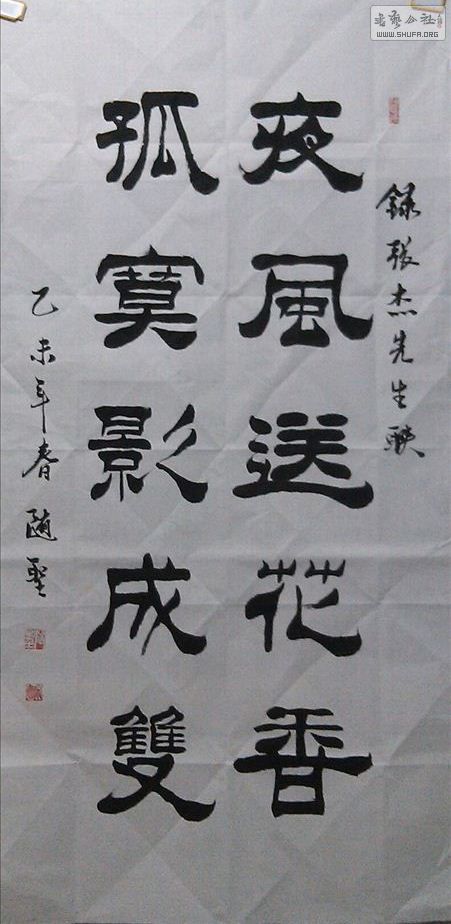 書藝公社
WWW.SHUFA.ORG
錄張杰先生联
夜風送花香
孤寞影成雙
乙未年春随聖